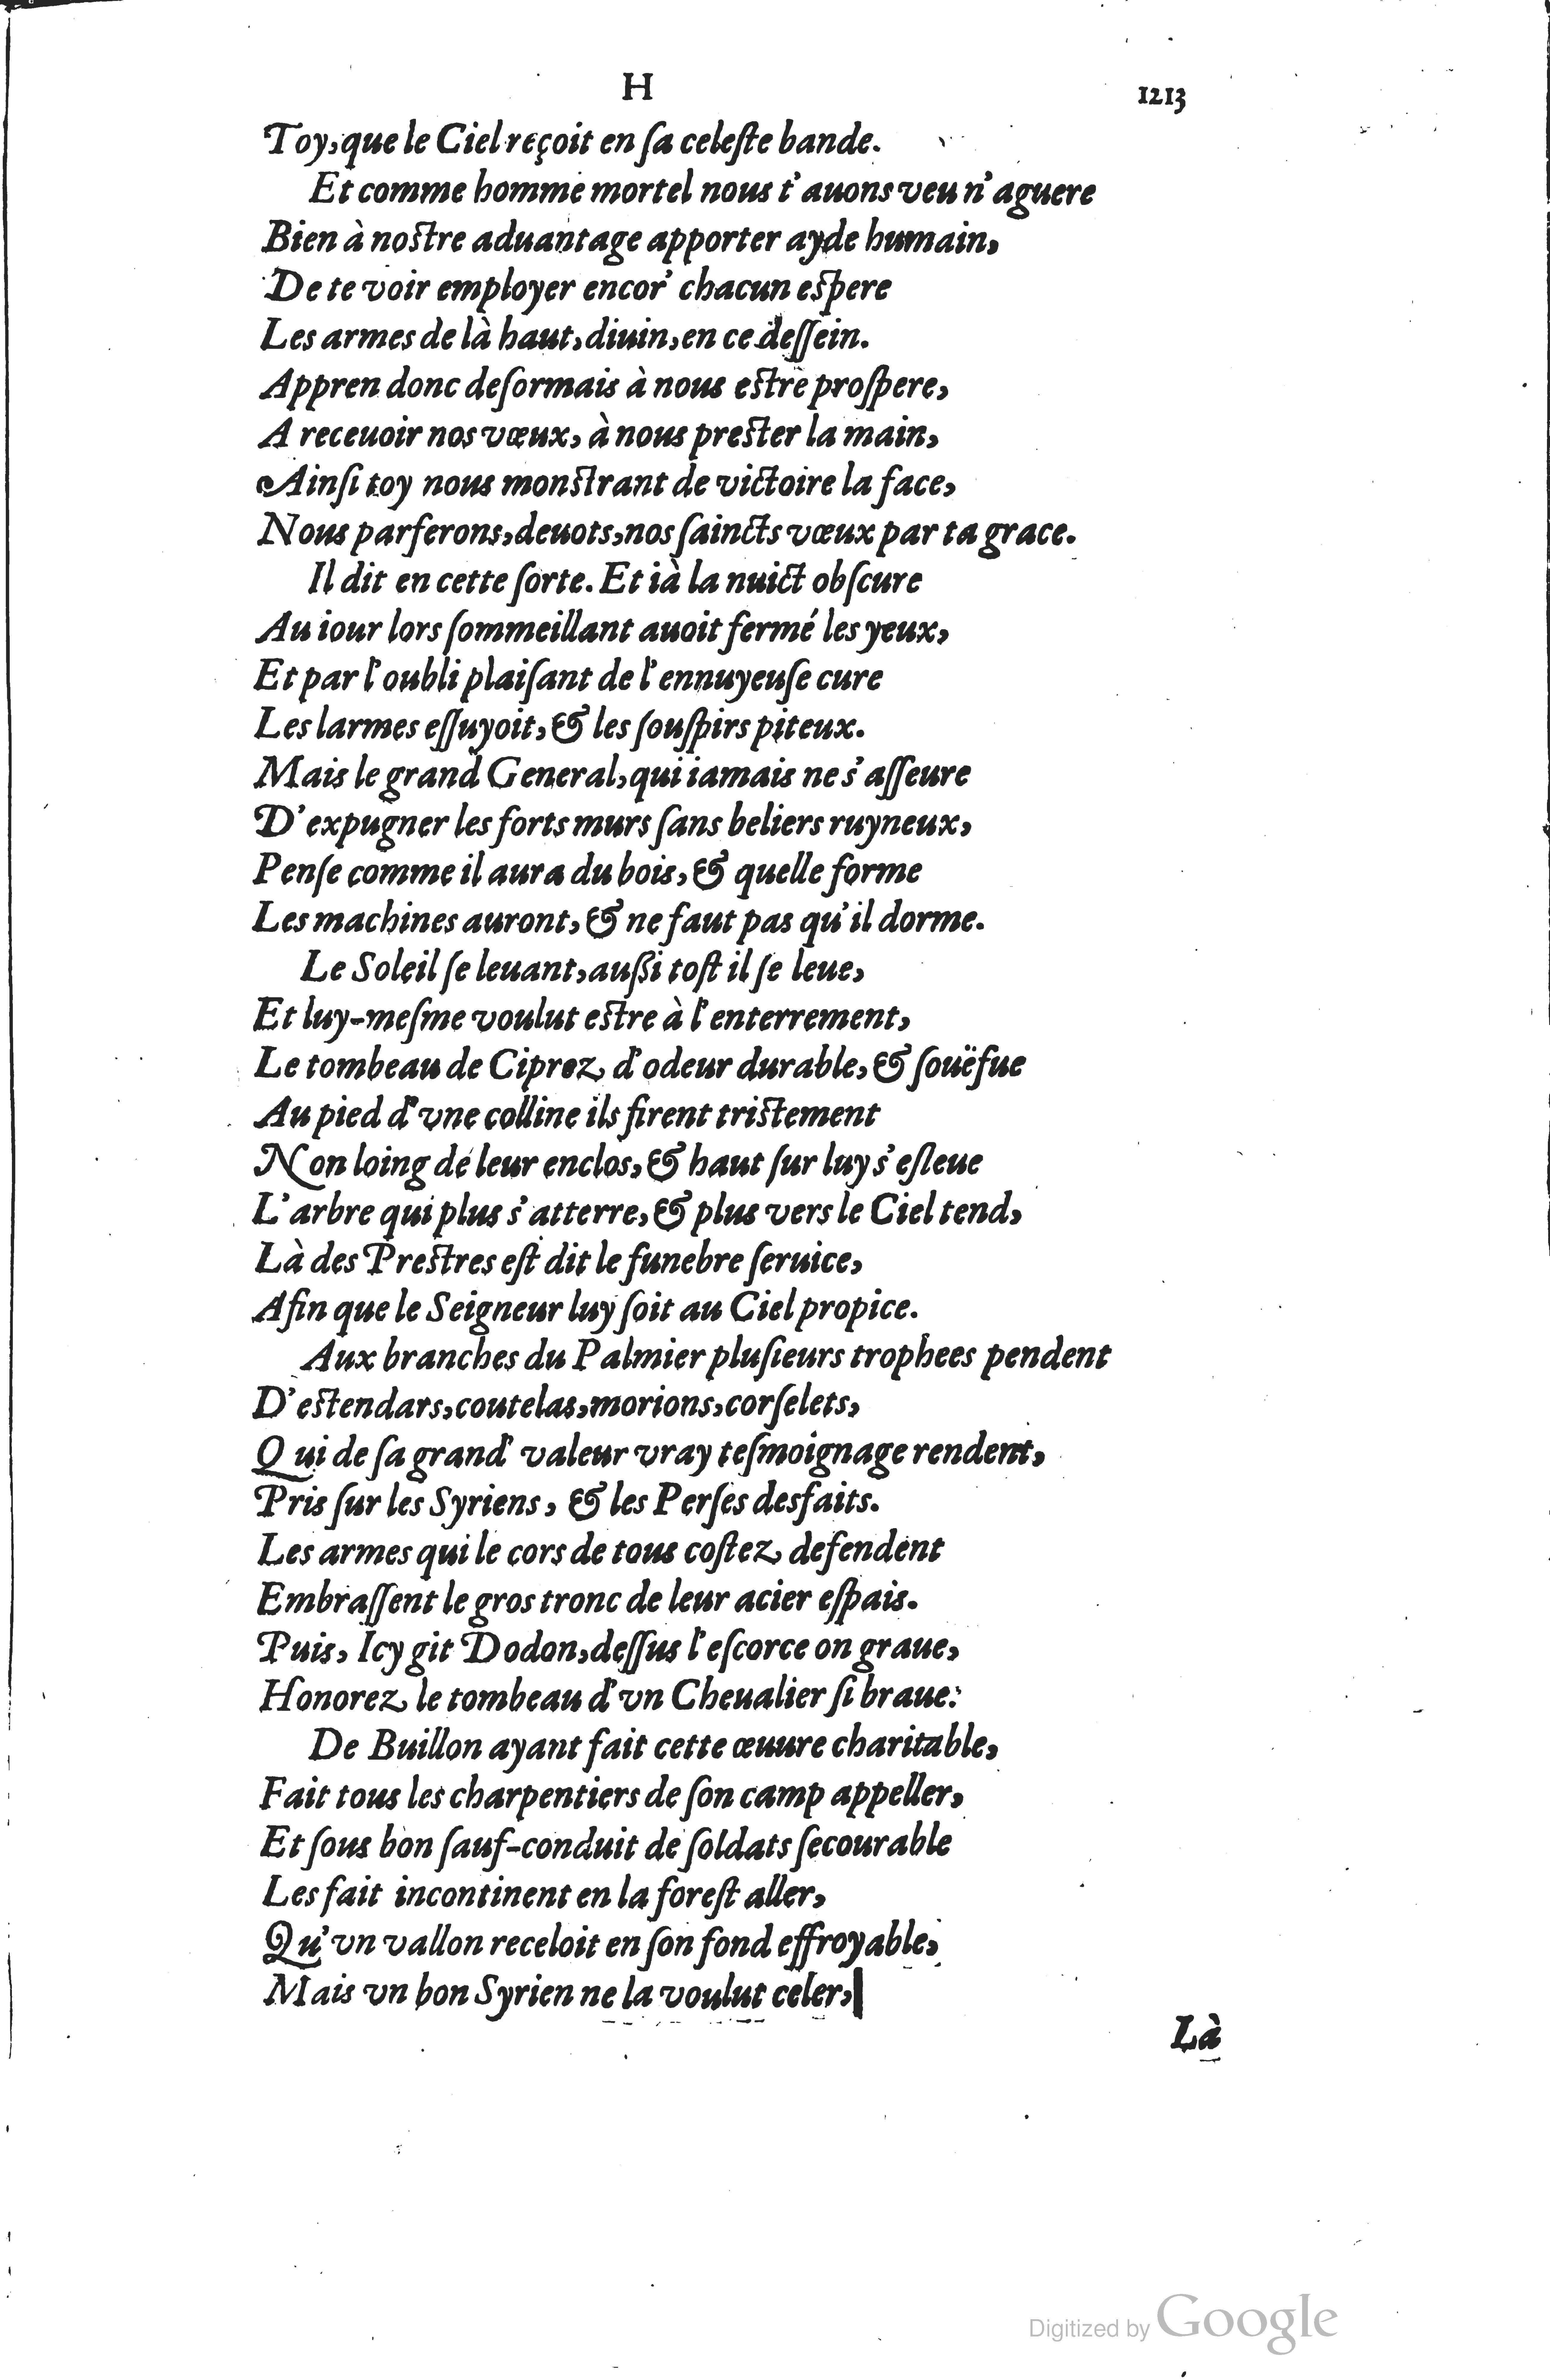 H 1213
Toy, que le Ciel reçoit en ſa celeſte bande.
Et comme homme mortel nous t'auons veu n'aguere
Bien à noſtre aduantage apporter ayde humain,
De te voir employer encor' chacun eſpere
Les armes de là haut, diuin, en ce deſſein.
Appren donc deſormais à nous eſtre proſpere,
A receuoir nos vœux, à nous preſter la main,
Ainſi toy nous monſtrant de victoire la face,
Nous parferons, deuots, nos ſaincts vœux par ta grace.
Il dit en cette ſorte. Et ià la nuict obſcure
Au iour lors ſommeillant auoit fermé les yeux,
Et par l'oubli plaiſant de l'ennuyeuſe cure
Les larmes eſſuyoit, & les ſouſpirs piteux.
Mais le grand General, qui iamais ne s'aſſeure
D'expugner les forts murs ſans beliers ruyneux,
Penſe comme il aura du bois, & quelle forme
Les machines auront, & ne faut pas qu'il dorme.
Le Soleil ſe leuant, auſſi toſt il ſe leue,
Et luy-meſme voulut eſtre à l'enterrement,
Le tombeau de Ciprez d'odeur durable, & ſouëfue
Au pied d'vne colline ils firent triſtement
Non loing de leur enclos, & haut ſur luy s'eſleue
L'arbre qui plus s'atterre, & plus vers le Ciel tend,
Là des Preſtres eſt dit le funebre ſeruice,
Afin que le Seigneur luy ſoit au Ciel propice.
Aux branches du Palmier pluſieurs trophees pendent
D'eſtendars, coutelas, morions, corſelets,
Qui de ſa grand' valeur vray teſmoignage rendent,
Pris ſur les Syriens, & les Perſes desfaits.
Les armes qui le cors de tous coſtez defendent
Embraſſent le gros tronc de leur acier eſpais.
Puis, Icy git Dodon, deſſus l'eſcorce on graue,
Honorez le tombeau d'vn Cheualier ſi braue:
De Buillon ayant fait cette œuure charitable,
Fait tous les charpentiers de ſon camp appeller,
Et ſous bon ſauf-conduit de ſoldats ſecourable
Les fait incontinent en la foreſt aller,
Qu'vn vallon receloit en ſon fond effroyable,
Mais vn bon Syrien ne la voulut celer,
Là
Digitized by Google